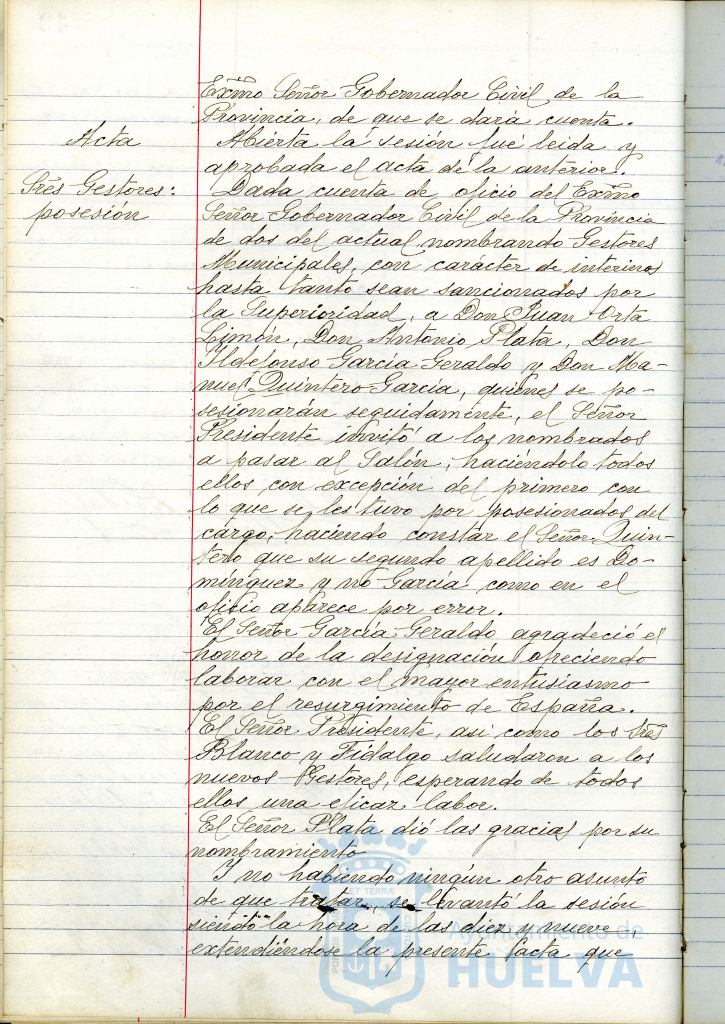 Exc̃mo Señor Gobernador Civil de la
Provincia, de que se dará cuenta.
Acta
Abierta la sesión fué leida y
aprobada el acta de la anterior.
Sres Gestores:
posesión
Dada cuenta de oficio del Exc̃mo
Señor Gobernador Civil de la Provincia
de dos del actual nombrando Gestores
Municipales, con carácter de interinos
hasta tanto sean sancionados por
la Superioridad, a Don Juan Orta
Limón, Don Antonio Plata, Don
Ildefonso García Geraldo y Don Ma-
nuel Quintero García, quienes se po-
sesionarán seguidamente, el Señor
Presidente invitó a los nombrados
a pasar al Salón, haciéndolo todos
ellos con excepción del primero con
lo que se les tuvo por posesionados del
cargo, haciendo constar el Señor Quin-
tero que su segundo apellido es Do-
minguez y no García como en el
oficio aparece por error.
El Señor García Geraldo agradeció el
honor de la designación ofreciendo
laborar con el mayor entusiasmo
por el resurgimiento de España.
El Señor Presidente, asi como los Sres
Blanco y Fidalgo saludaron a los
nuevos Gestores, esperando de todos
ellos una eficaz labor.
El Señor Plata dió las gracias por su
nombramiento
Y no habiendo ningun otro asunto
de que tratar, se levantó la sesión
siendo la hora de las diez y nueve
extendiéndose la presente acta que
Ayuntamiento de
HUELVA